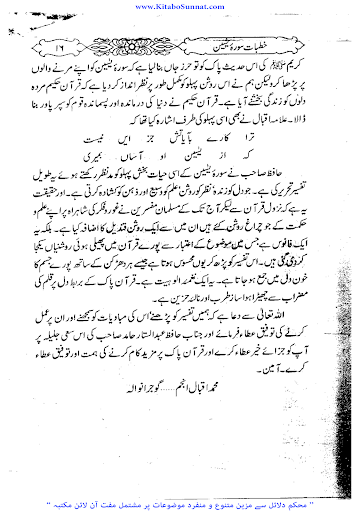 www.KitaboSunnat.com
خطبات سورۂ یٰسین
۱۶
کریم ﷺ کی اس حدیث پاک کو تو حرز جاں بنا لیا ہے کہ سورۂ یٰسین کو اپنے مرنے والوں
پر پڑھا کرو لیکن ہم نے اس روشن پہلو کو مکمل طور پر نظر انداز کر دیا ہے کہ قرآن حکیم مردہ
دلوں کو زندگی بخشنے آیا ہے۔ قرآن حکیم نے دنیا کی درماندہ اور پسماندہ قوم کو سپر پاور بنا
ڈالا۔ علامہ اقبال نے بھی اسی پہلو کی طرف اشارہ کیا تھا کہ
ترا کارے بآیاتش جز ایں نیست
کہ از یٰسین او آساں بمیری
حافظ صاحب نے سورۂ یٰسین کے اسی حیات بخش پہلو کو مدنظر رکھتے ہوئے یہ طویل
تفسیر تحریر کی ہے۔ جو دل کو زندہ نظر کو روشن علم کو وسیع اور ذہن کو کشادہ کرتی ہے۔ اور حقیقت
یہ ہے کہ نزول قرآن سے لیکر آج تک کے مسلمان مفسرین نے غور و فکر کی شاہراہ پر اپنے علم و
حکمت کے جو چراغ روشن کئے ہیں ان میں سے ایک روشن قندیل کا اضافہ کیا ہے۔ بلکہ یہ
ایک فانوس ہے جس میں موضوع کے اعتبار سے پورے قرآن میں پھیلی ہوئی روشنیاں یکجا
کر دی گئی ہیں۔ اس تفسیر کو پڑھ کر یوں محسوس ہوتا ہے جیسے ہر دھڑکن کے ساتھ پورے جسم کا
خون دل میں جمع ہو جاتا ہے۔ یہ ایک نغمۂ الوہیت ہے۔ قرآن پاک کے بربط دل پر قلم کی
مضراب سے چھیڑا ہوا ساز طرب اور نالۂ حزیں ہے۔
اللہ تعالٰی سے دعا ہے کہ ہمیں تفسیر کو پڑھنے اس کی مبادیات کو سمجھنے اور ان پر عمل
کرنے کی توفیق عطاء فرمائے اور جناب حافظ عبدالستار حامد صاحب کی اس سعی جلیلہ پر
آپ کو جزائے خیر عطاء کرے اور قرآن پاک پر مزید کام کرنے کی ہمت اور توفیق عطاء
کرے۔ آمین۔
محمد اقبال انجم ...... گوجرانوالہ
" محکم دلائل سے مزین متنوع و منفرد موضوعات پر مشتمل مفت آن لائن مکتبہ "